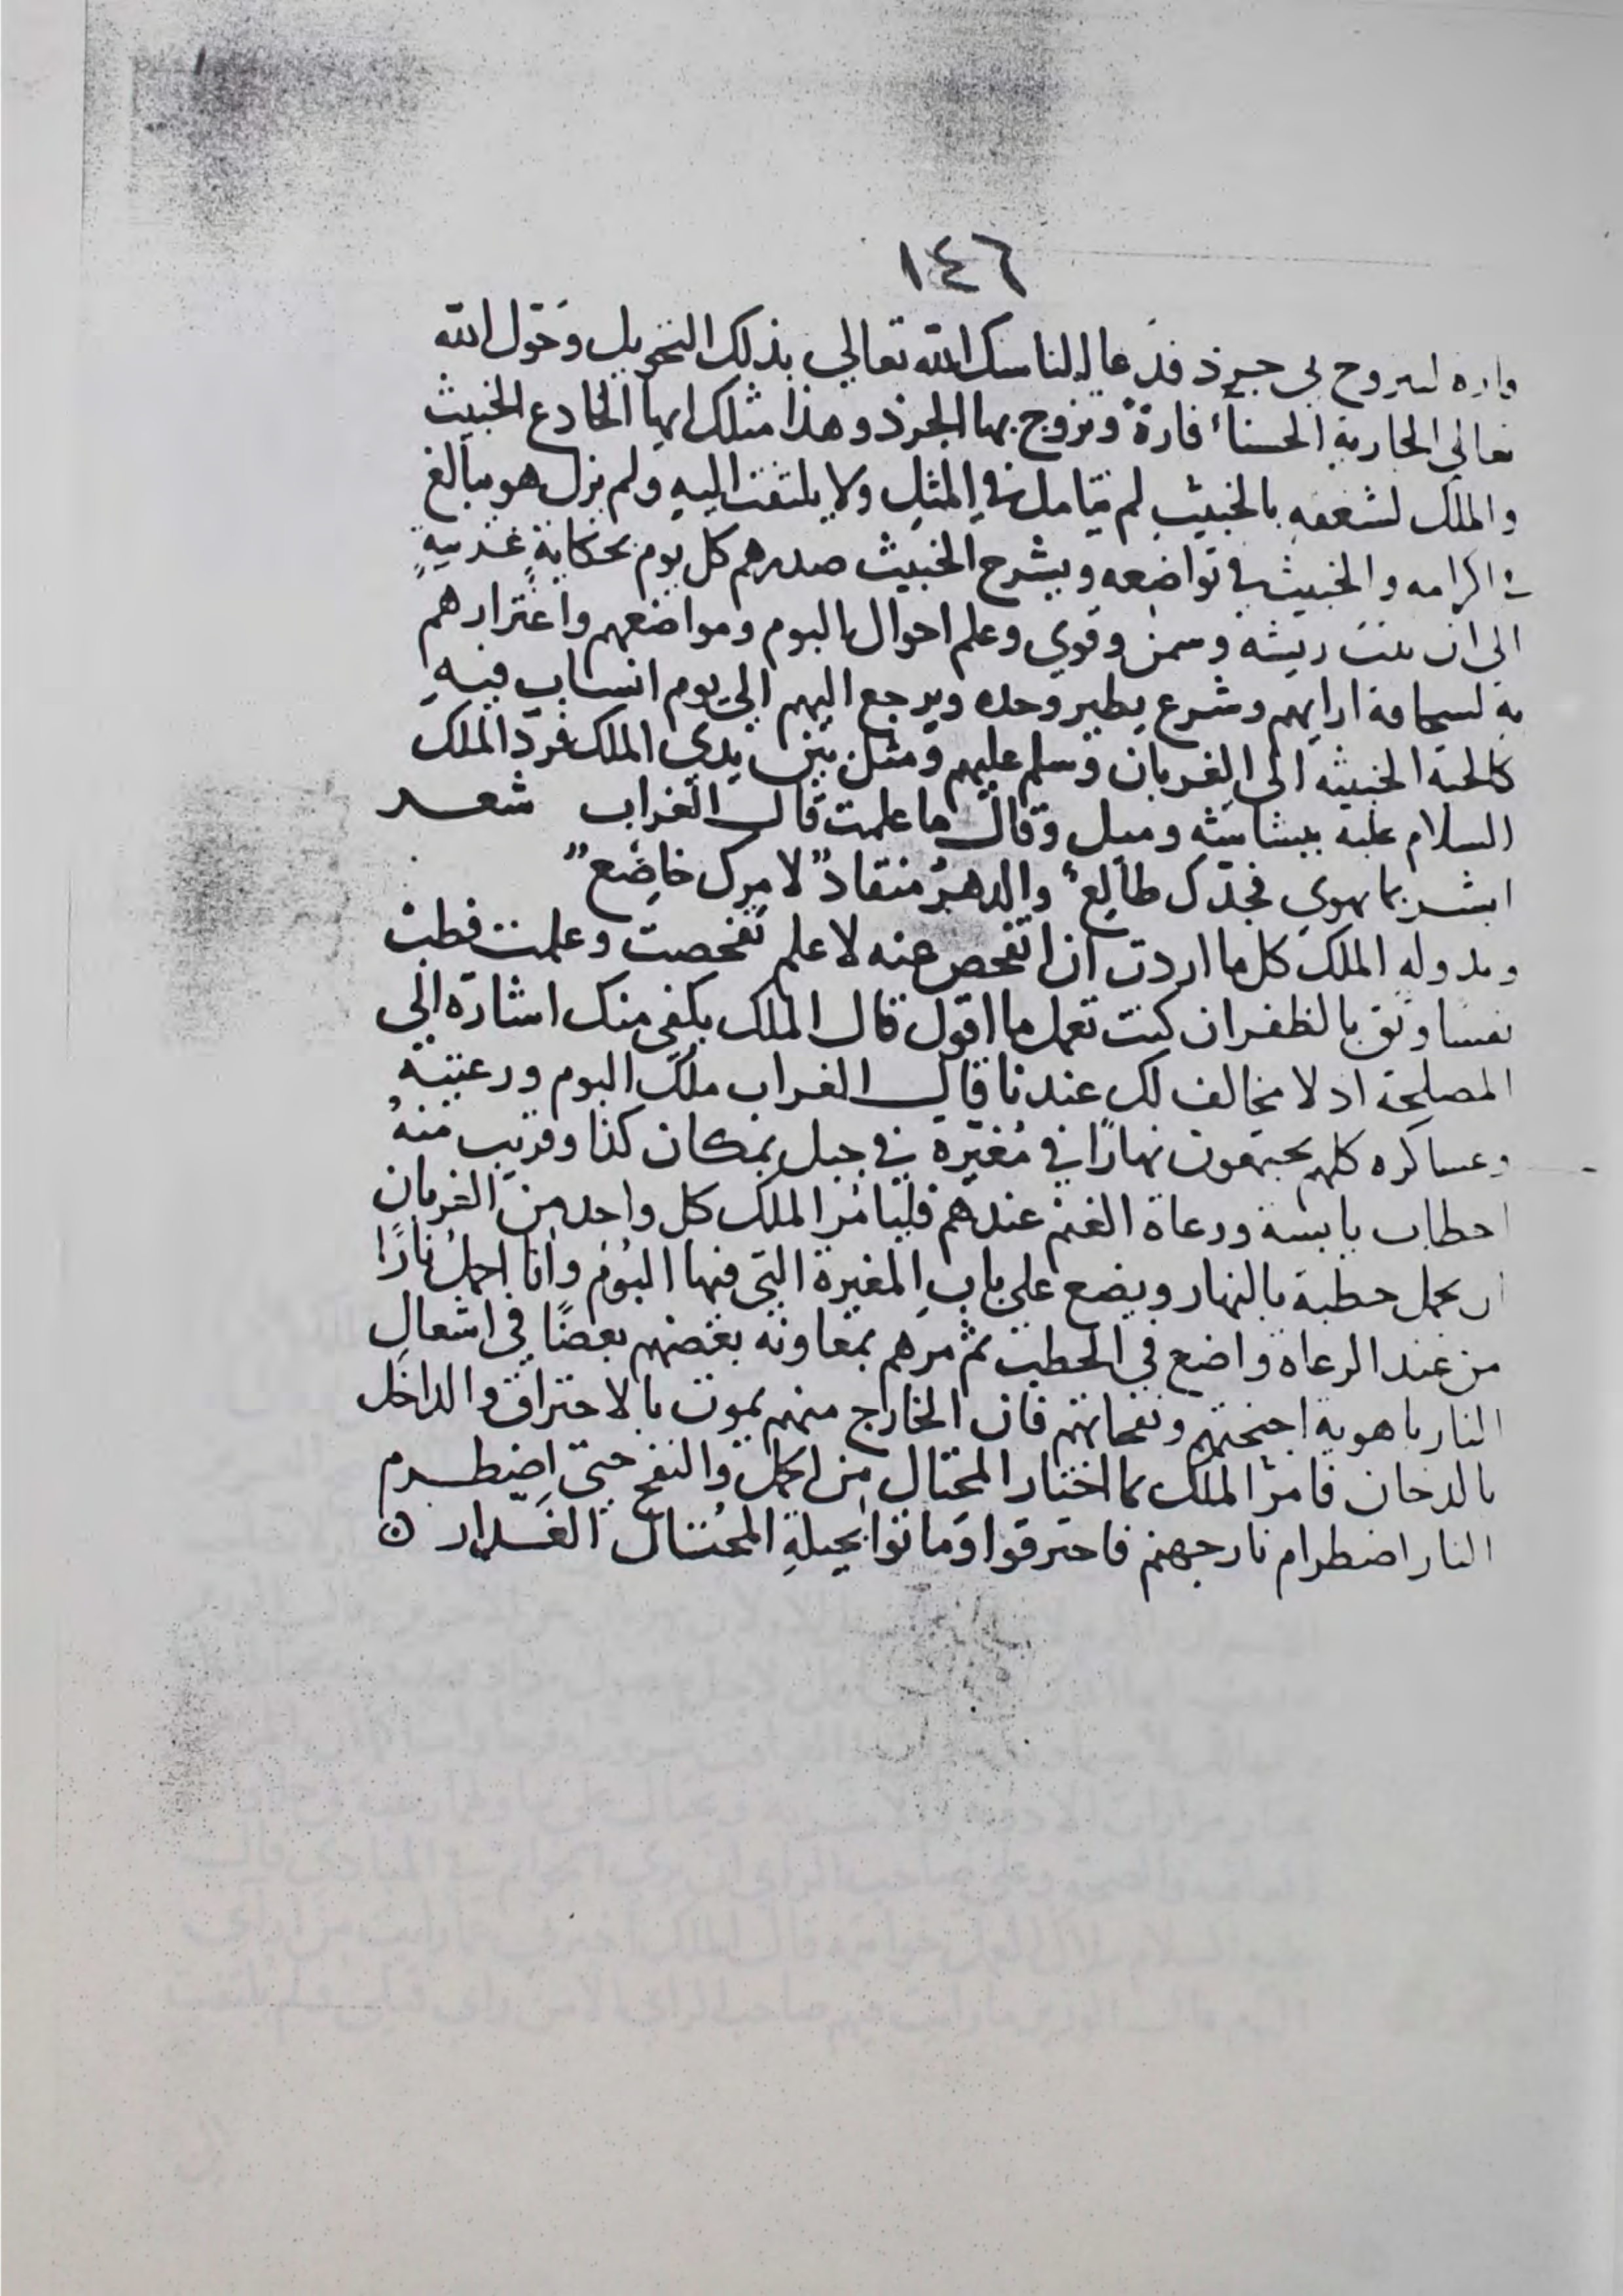 ١٤٦
فارة ليتزوج بي جرذ فدعا الناسك الله تعالي بذلك التحويل وحَوّل الله
تعالي الجارية الحسناء فارة وتزوج بها الجرذ وهذا مثلك ايها الخادع الخبيث
والملك لشغفه بالخبيث لم يتامل في المثل ولا يلتفت اليه ولم يزل هو يبالغ
في اكرامه والخبيث في تواضعه ويشرح الخبيث صدرهم كل يوم بحكايةٍ غريبةٍ
الي ان نبت ريشه وسمن وقوي وعلم احوال البوم ومواضعهم واغترارهم
به لسخافة ارايهم وشرع يطير وحده ويرجع اليهم الي يوم انساب فيه
كالحية الخبيثه الي الغربان وسلم عليهم ومثل بين يدي الملك فردّ الملك
السلام عليه ببشاشته وميل وقال ما علمت قال الغراب شعر
ابشر بما تهوي فجدّك طالع والدهرُ منقادٌ لامرك خاضع
وبدولة الملك كل ما اردت ان اتفحص عنه لاعلم تفحصت وعلمت فطب
نفسًا وثق بالظفر ان كنت تعمل ما اقول قال الملك يكفي منك اشارة الي
المصلحة اذ لا مخالف لك عندنا قال الغراب ملك البوم ورعيته
وعساكره كلهم يجتمعون نهارًا في مُغيرة في جبل بمكان كذا وقريب منهُ
احطاب يابسة ورعاة الغنم عندهم فليامر الملك كل واحد من الغربان
ان يحمل حطبة بالنهار ويضع علي بابِ المغيرة التي فيها البُوم وانا احمل نارًا
من عند الرعاة واضع في الحطب ثم مرهم بمعاونة بعضهم بعضًا في اشعال
النار باهوية اجنحتهم ونفحاتهم فان الخارج منهم يموت بالاحتراق والداخل
بالدخان فامر الملك بما اختار المحتال من الحمل والنفخ حتي اضطرم
النار اضطرام نار جهنم فاحترقوا وماتوا بحيلةِ المحتال الغدار ٥